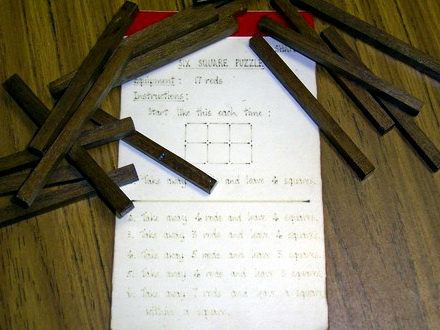 SIX SQUARE PUZZLE
Equipment: 17 rods
Instructions:
Start like this each time:
1. Take away and leave 4 squares.
2. Take away 4 rods and leave 4 squares.
3. Take away 3 rods and leave 4 squares.
4. Take away 5 rods and leave 3 squares.
5. Take away 4 rods and leave squares.
6. Take away 7 rods and leave a square
within a square.